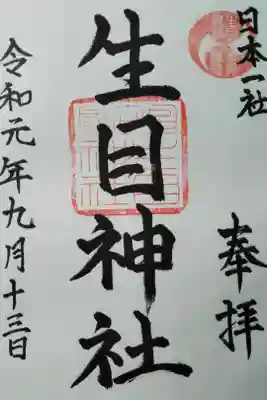 日本一社
奉拝
生目神社
令和元年九月十三日